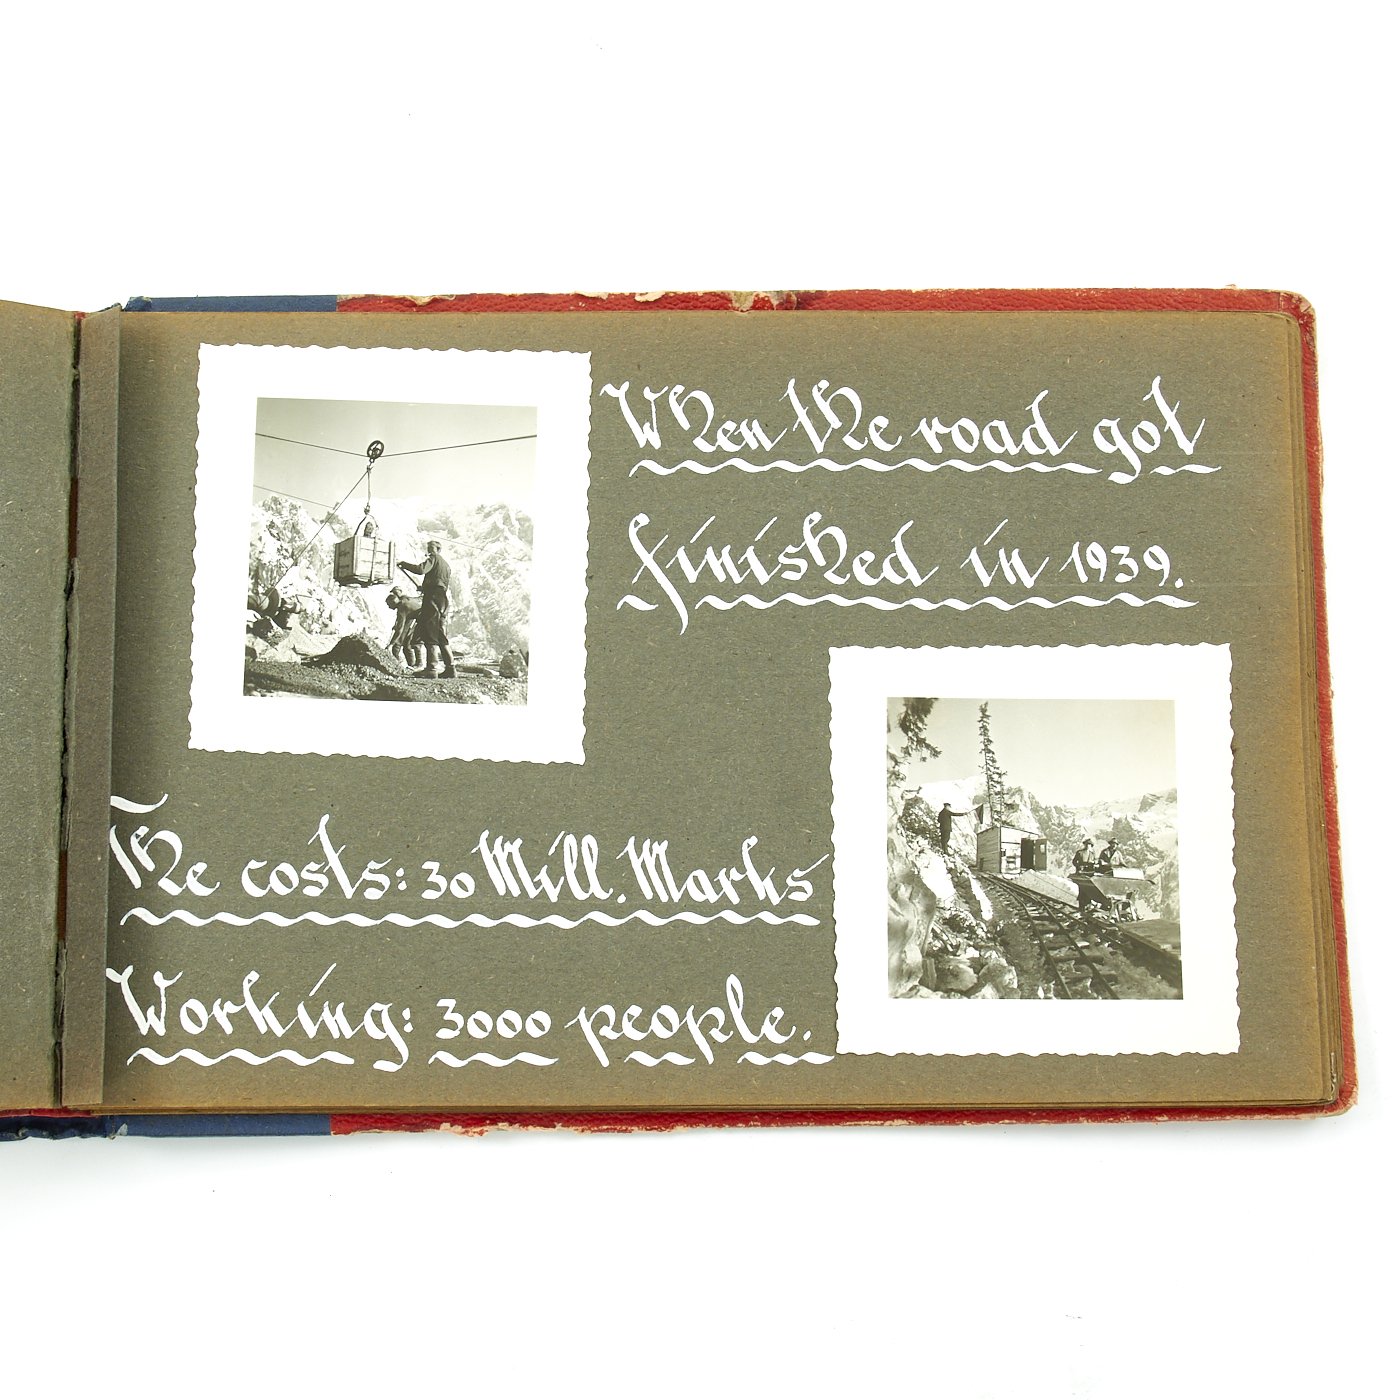 When the road got
finished in 1939.
The costs: 30 Mill. Marks
Working: 3000 people.